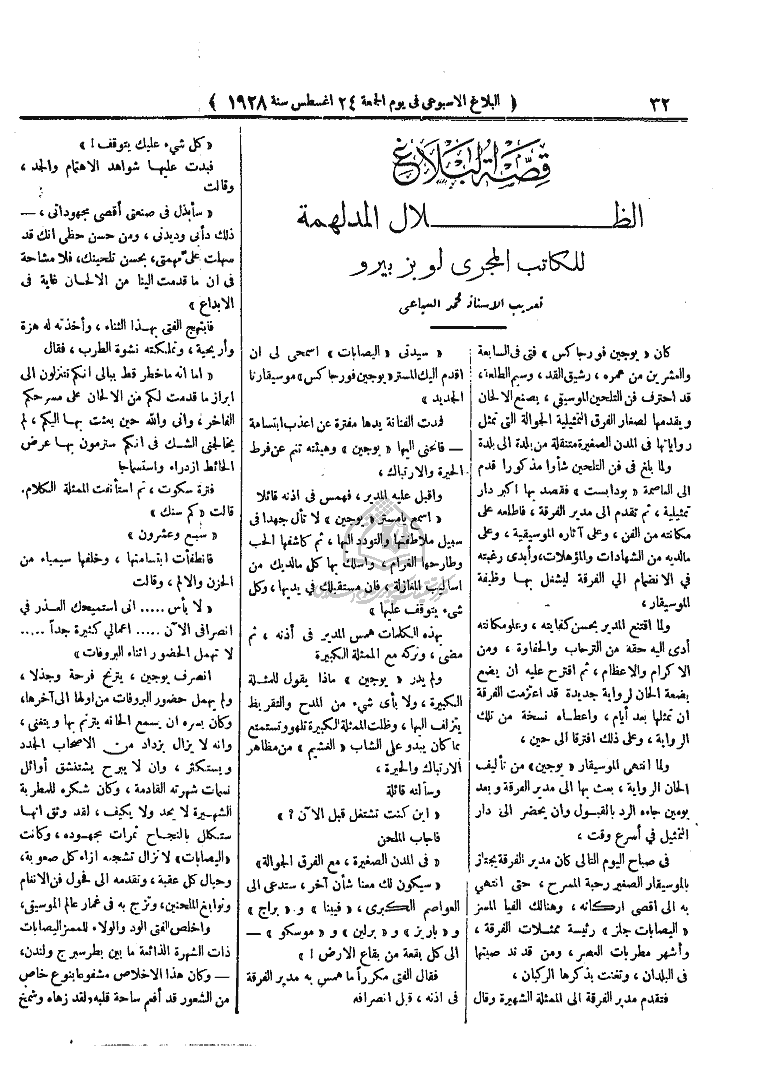 ٣٢
( البلاغ الاسبوعى فى يوم الجمعة ٢٤ اغسطس سنة ١٩٢٨ )
قصة البلاغ
الظلال المدلهمة
للكاتب المجرى لوبز بيرو
تعريب الاستاذ محمد السباعى
كان « يوجين فورجاكس » فتى فى السابعة
والعشرين من عمره ، رشيق القد ، وسيم الطلعة ،
قد احترف فن التلحين الموسيقى ، يصنع الالحان
و يقدمها لصغار الفرق التمثيلية الجوالة التى تمثل
رواياتها فى المدن الصغيرة متنقلة من بلدة الى بلدة
ولما بلغ فى فن التلحين شأوا مذكورا قدم
الى العاصمة « بودابست » فقصد بها اكبر دار
تمثيلية ، ثم تقدم الى مدير الفرقة ، فاطلعه على
مكانته من الفن ، وعلى آثاره الموسيقية ، وعلى
مالديه من الشهادات والمؤهلات، وأبدى رغبته
فى الانضمام الى الفرقة ليشغل بها وظيفة
الموسيقار ،
ولما اقتنع المدير بحسن كفايته ، وعلو مكانته
أدى اليه حقه من الترحاب والحفاوة ، ومن
الاكرام والاعظام ، ثم اقترح عليه ان يضع
بضعة الحان لرواية جديدة قد اعتزمت الفرقة
ان تمثلها بعد أيام ، واعطاه نسخة من تلك
الرواية ، وعلى ذلك افترقا الى حين ،
ولما انتهى الموسيقار « يوجين » من تأليف
الحان الرواية ، بعث بها الى مدير الفرقة و بعد
يومين جاءه الرد بالقبول وان يحضر الى دار
التمثيل فى أسرع وقت ،
فى صباح اليوم التالى كان مدير الفرقة يجتاز
بالموسيقار الصغير رحبة المسرح ، حتى انتهى
به الى اقصى اركانه ، وهنالك الفيا الممز
« اليصابات جلنز » رئيسة ممثلات الفرقة ،
وأشهر مطربات العصر ، ومن قد ند صيتها
فى البلدان ، وتغنت بذكرها الركبان ،
فتقدم مدير الفرقة الى الممثلة الشهيرة وقال
« سيدتى « اليصابات » اسمحى لى ان
اقدم اليك المستر « يوجين فورجاكس » موسيقارنا
الجديد »
فمدت الفنانة يدها مفترة عن اعذب ابتسامة
— فانحنى اليها « يوجين » وهيئته تنم عن فرط
الحيرة والارتباك ،
واقبل عليه المدير ، فهمس فى اذنه قائلا
« اسمع يامستر « يوجين » لا تأل جهدا فى
سبيل ملاطفتها والتودد اليها ، ثم كاشفها الحب
وطارحها الغرام ، واسلك بها كل مالديك من
اساليب المغازلة ، فان مستقبلك فى يديها ، وكل
شىء يتوقف عليها »
بهذه الكلمات همس المدير فى أذنه ، ثم
مضى ، وتركه مع الممثلة الكبيرة
ولم يدر « يوجين » ماذا يقول للممثلة
الكبيرة ، ولا بأى شىء من المدح والتقريظ
يتزلف اليها ، وظلت الممثلة الكبيرة تلهو وتستمتع
بما كان يبدو على الشاب « الغشيم » من مظاهر
الارتباك والحيرة ،
وسألته قائلة
« اين كنت تشتغل قبل الآن ؟ »
فاجاب الملحن
« فى المدن الصغيرة ، مع الفرق الجوالة »
« سيكون لك معنا شأن آخر ، ستدعى الى
العواصم الكبرى ، فيينا » و « براج »
و « باريز » و « برلين » و « موسكو » —
الى كل بقعة من بقاع الارض ! »
فقال الفتى مكرراً ما همس به مدير الفرقة
فى اذنه ، قبل انصرافه
« كل شىء عليك يتوقف ! »
فبدت عليها شواهد الاهتمام والجد ،
وقالت
« سأبذل فى صنعتى أقصى مجهوداتى ، —
ذلك دأبى وديدنى ، ومن حسن حظى انك قد
سهلت على مهمتى ، بحسن تلحينك ، فلا مشاحة
فى ان ما قدمت الينا من الالحان غاية فى
الابداع »
فابتهج الفتى بهذا الثناء ، وأخذته له هزة
وأريحية ، وتملكته نشوة الطرب ، فقال
« اما انه ماخطر قط ببالى انكم تتنزلون الى
ابراز ما قدمت لكم من الالحان على مسرحكم
الفاخر ، وانى والله حين بعثت بها اليكم ، لم
يخالجنى الشك فى انكم سترمون بها عرض
الحائط ازدراء واستسماجا
فترة سكوت ، ثم استأنفت الممثلة الكلام.
قالت « كم سنك »
« سبع وعشرون »
فانطفأت ابتسامتها ، وخلفها سيمياء من
الحزن والالم ، وقالت
« لا بأس ..... انى استميحك العذر فى
انصرافى الآن ..... اعمالى كثيرة جداً .....
لا تهمل الحضور اثناء البروفات »
انصرف يوجين ، يترنح فرحة وجذلا ،
ولم يهمل حضور البروفات من اولها الى آخرها،
وكان يسره ان يسمع الحانه يترنم بها ويتغنى ،
وانه لا يزال يزداد من الاصحاب الجدد
و يستكثر ، وان لا يبرح يستنشق أوائل
نسمات شهرته القادمة ، وكان شكره للمطربة
الشهيرة لا يحد ولا يكيف ، لقد وثق انها
ستكلل بالنجاح ثمرات مجهوده ، وكانت
« اليصابات » لا تزال تشجعه ازاء كل صعوبة،
وحيال كل عقبة ، وتقدمه الى فحول فن الانغام
ونوابغ الملحنين، وتزج به فى غمار عالم الموسيقى،
واخلص الفتى الود والولاء للممز اليصابات
ذات الشهرة الذائعة ما بين بطرسبرج ولندن،
— وكان هذا الاخلاص مشفوعا بنوع خاص
من الشعور قد أفعم ساحة قلبه، ولقد زهاه وشمخ